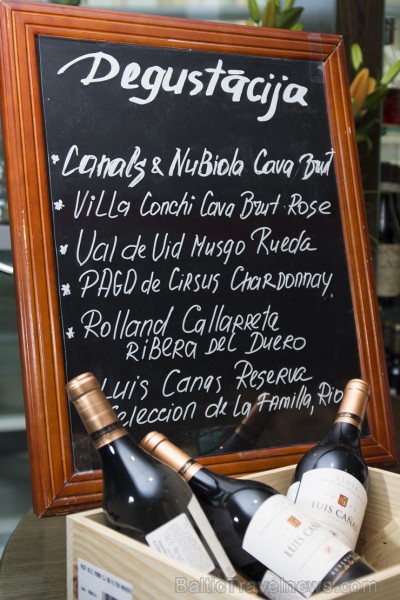 Degustācija
* Canals & Nubiola Cava Brut
* Villa Conchi Cava Brut Rose
* Val de Vid Musgo Rueda
* PAGO de Cirsus Chardonnay,
* Rolland Gallarreta
RIBERA DEL DUERO
Luis Canas Reserva
Seleccion de la Familla, Rio
LUIS CAÑAS
LUIS CAÑAS
© BalticTravelnews.com